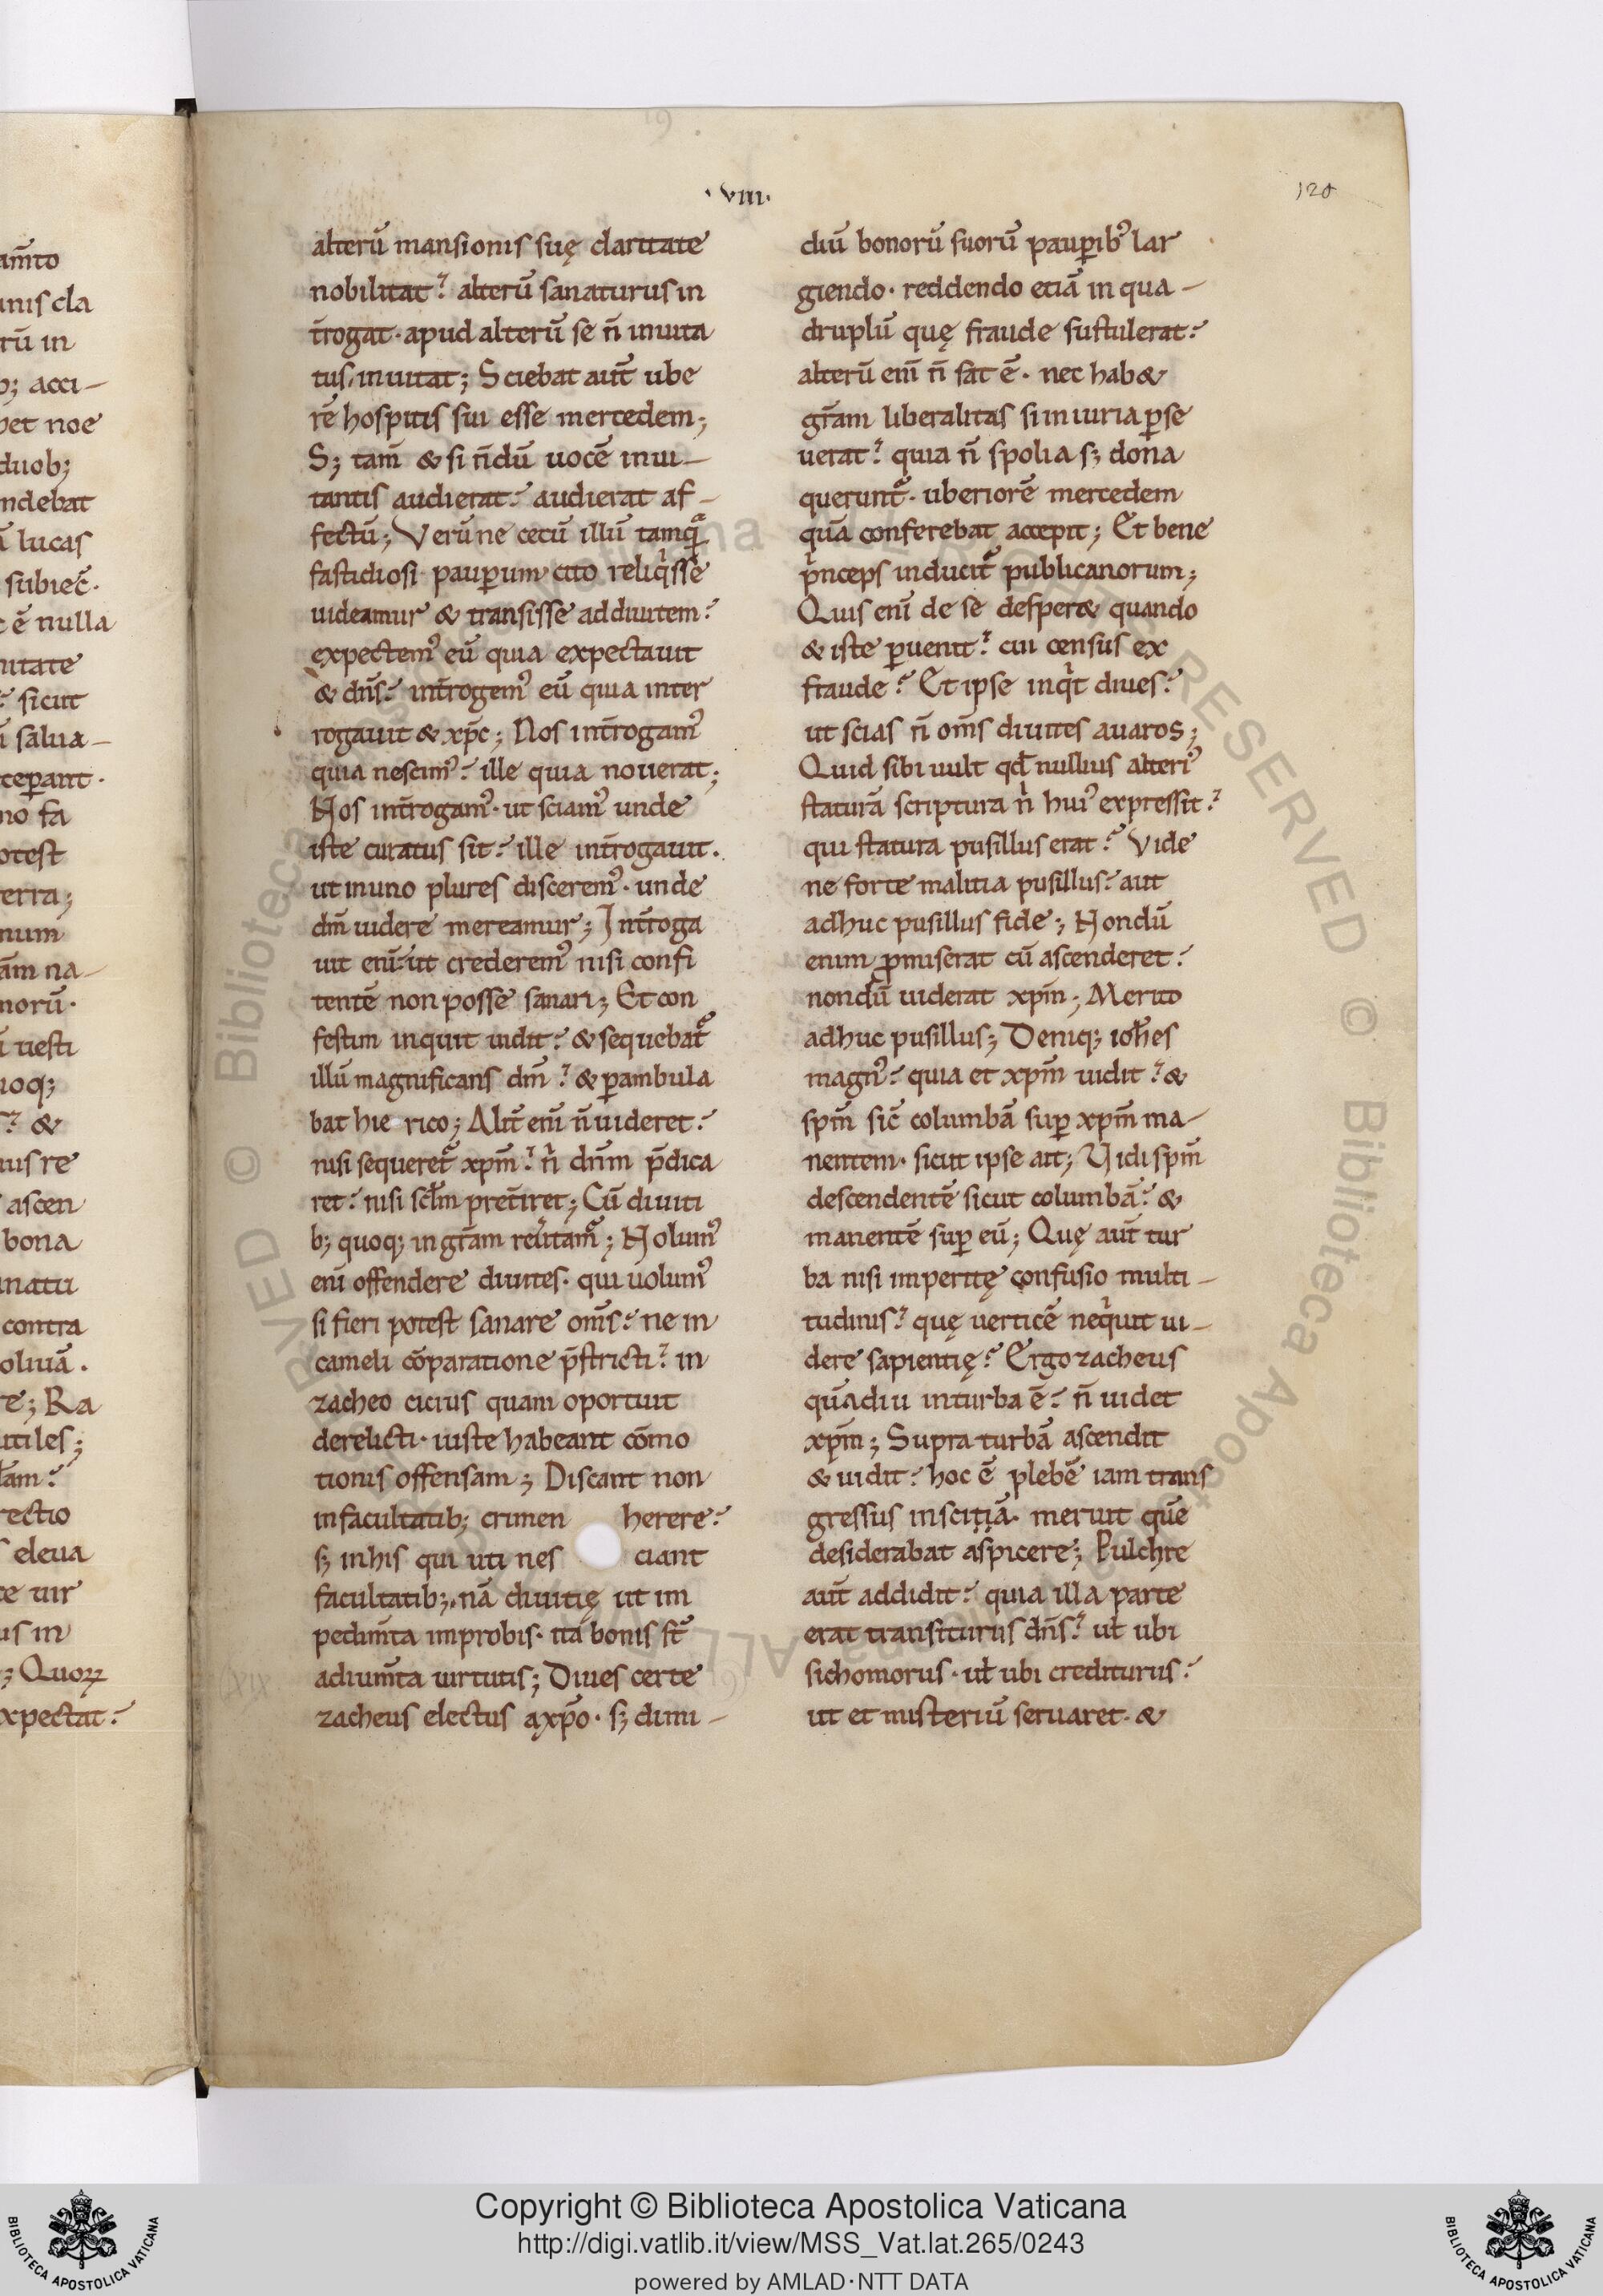 am̄to
unis cla
rū in
b; acci-
bet noe
duob;
ndebat
ā lucas
subiec̄.
c ē nulla
uitate
sicut
ū salua-
ceperant.
no fa
otest
terra;
num
ām na-
norū.
ū uesti
uoq;
& 
ius re
ascen
bona
natu
contra
oliuā.
re; Ra
utiles;
l̄am?
rectio
s eleua
te uir
us in
; Quoꝝ
xpectat?
·VIII·
120
alterū mansionis suę claritate
nobilitat? alterū sanaturus in
t̄rogat· apud alterū se n̄ inuita
tus, inuitat; Sciebat aut̄ ube
rē hospitis sui esse mercedem;
S; tam̄ & si n̄dū uocē inui-
tantis audierat? audierat af-
fectū; Verū ne cecū illū tamqͣ
fastidiosi pauꝑum cito reliq͛sse
uideamur & transisse addiuitem?
expectem᾽ eū quia expectauit
& dn̄s? int̄rogem᾽ eū quia inter
rogauit & xp̄c; Nos int̄rogam᾽
quia nescim᾽? ille quia nouerat;
Nos int̄rogam᾽· ut sciam᾽ unde
iste curatus sit? ille int̄rogauit.
ut inuno plures discerem᾽· unde
dm̄ uidere mereamur; Int̄roga
uit eni᷑? ut crederem᾽ nisi confi
tentē non posse sanari; Et con
festim inquit uidit? & sequebat᷑
illū magnificans dm̄? & ꝑambula
bat hie rico; Alit̄ eni᷑ n̄ uideret?
nisi sequeret᷑ xpm̄? n͛ dn̄m p̄dica
ret? nisi scl̄m pret̄iret; Cū diuiti
b; quoq; in gr̄am reu͛tam᷑; Nolum᾽
eni᷑ offendere diuites· qui uolum᾽
si fieri potest sanare om̄s? ne in
cameli cōparatione p̄stricti? in
zacheo cicius quam oportuit
derelicti· iuste habeant cōmo
tionis offensam; Discant non
in facultatib; crimen herere?
s; in his qui uti nes ciant
facultatib;. nā diuitię ut im
pedim̄ta improbis· ita bonis st̄
adium̄ta uirtutis; Diues certe
zacheus electus axp̄o· s; dimi-
diū bonorū suorū pauꝑib᾽ lar
giendo· reddendo etiā in qua-
druplū quę fraude sustulerat?
alterū em̄ n̄ sat ē· nec hab&
gr̄am liberalitas si iniuria ꝑse
uerat? quia n̄ spolia s; dona
querunt᷑· uberiorē mercedem
quā conferebat accepit; Et bene
p͛nceps inducit᷑ publicanorum;
Quis eni᷑ de se desper& quando
& iste ꝑuenit? cui census ex
fraude? Et ipse inq͛t diues?
ut scias n̄ om̄s diuites auaros;
Quid sibi uult qd̄ nullius alteri᾽
staturā scriptura n͛ hui᾽ expressit?
qui statura pusillus erat? Vide
ne forte malitia pusillus? aut
adhuc pusillus fide; Nondū
enim ꝓmiserat cū ascenderet?
nondū uiderat xpm̄; Merito
adhuc pusillus; Deniq; ioħes
magn᾽? quia et xpm̄ uidit? &
spm̄ sic̄ columbā suꝑ xpm̄ ma-
nentem· sicut ipse ait; Uidi spm̄
descendentē sicut columbā? &
manentē suꝑ eū; Quę aut̄ tur
ba nisi imperitę confusio multi-
tudinis? quę uerticē neq͛uit ui-
dere sapientię? Ergo zacheus
quādiu inturba ē? n̄ uidet
xpm̄; Supra turbā ascendit
& uidit? hoc ē plebē iam trans
gressus inscitiā· meruit quē
desiderabat aspicere; Pulchre
aut̄ addidit? quia illa parte
erat transiturus dn̄s? ul̄ ubi
sichomorus· ul̄ ubi crediturus?
ut et misteriū seruaret· &
Copyright © Biblioteca Apostolica Vaticana
http://digi.vatlib.it/view/MSS_Vat.lat.265/0243
powered by AMLAD·NTT DATA
BIBLIOTECA APOSTOLICA VATICANA
BIBLIOTECA APOSTOLICA VATICANA